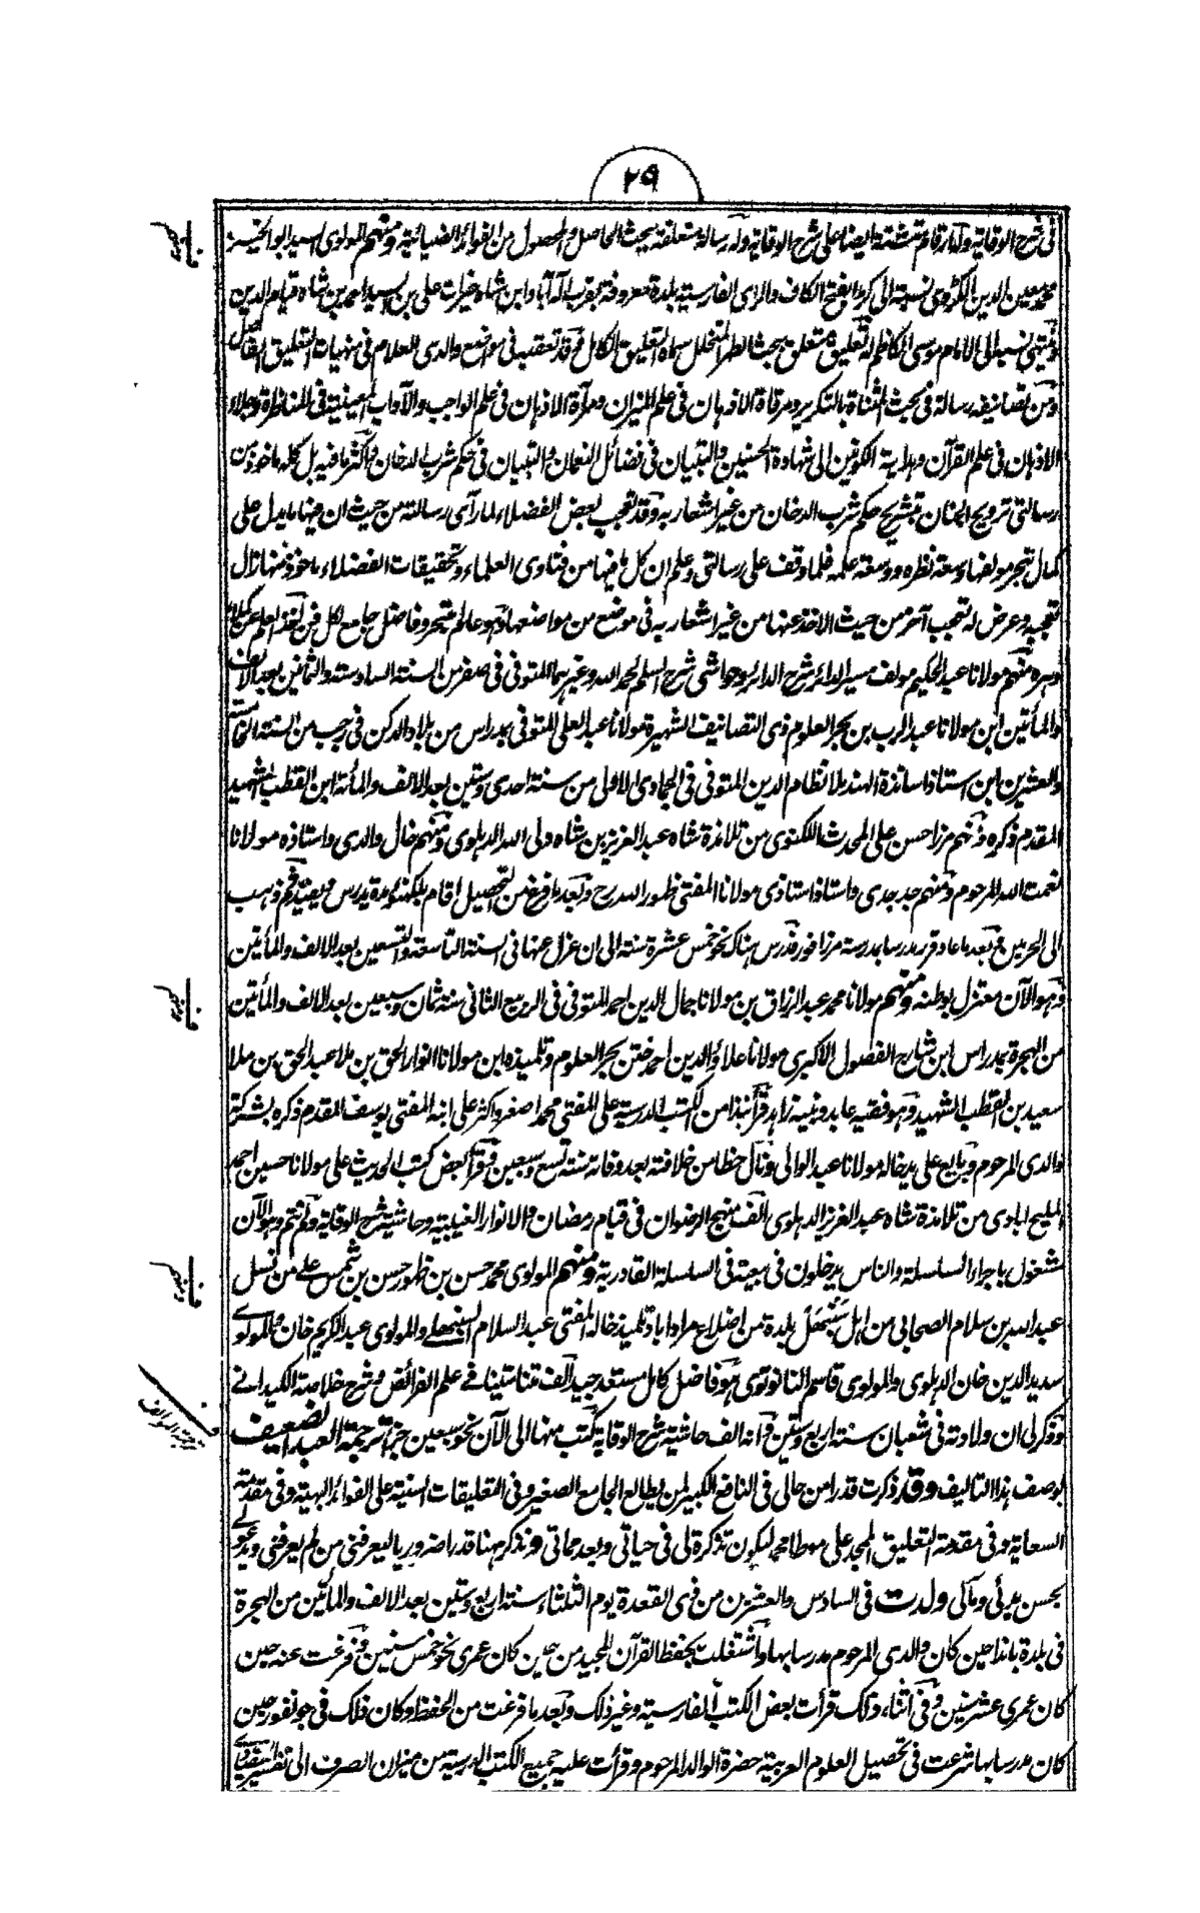 ٢٩
فى شرح الوقاية وله ارقام متشتتة ايضا على شرح الوقاية وله رسالة متعلقة ببحث الحاصل والمحصول من الفوائد الضيائية ومنهم المولوى السيد ابو الخير
محمد معين الدين الكروى نسبة الى كرا بفتح الكاف والراى الفارسية بلدة معروفة بقرب اله آباد ابن شاه خيرات على بن السيد احمد بن شاه قيام الدين
وينتهى نسبه الى الامام موسى الكاظم له تعليق متعلق ببحث الطهر المتخلل سماه التعليق الكامل وقد تعقبه فى مواضع والدى العلام فى منهيات التعليق الفاضل
ومن تصانيفه رسالة فى بحث المثناة بالتكرير ومرقاة الاذهان فى علم الميزان ومرآة الاذهان فى علم الواجب والآداب المعينية فى المناظرة وجلاء
الاذهان فى علم القرآن وهداية الكونين الى شهادة الحسنين والتبيان فى فضائل النعمان والتبيان فى حكم شرب الدخان واكثر ما فيه بل كله ماخوذ من
رسالتى ترويح الجنان بتشريح حكم شرب الدخان من غير اشعار به وقد تعجب بعض الفضلاء لما رآى رسالته من حيث ان فيها ما يدل على
كمال تبحر مولفها وسعة نظره ووسعة علمه فلما وقف على رسالتى وعلم ان كل ما فيها من فتاوى العلماء وتحقيقات الفضلاء ماخوذ منها زال
تعجبه وعرض له تعجب آخر من حيث الاخذ عنها من غير اشعار به فى موضع من مواضعها وهو عالم متبحر وفاضل جامع لكل فن اخذ العلم عن كملاء
دهره منهم مولانا عبد الحكيم مولف مسير الدائر شرح الدائر وحواشى شرح السلم لحمد الله وغيرهما المتوفى فى صفر من السنة السادسة والثمانين بعد الالف
والمأتين ابن مولانا عبد الرب بن بحر العلوم ذى التصانيف الشهيرة مولانا عبد العلى المتوفى بمدراس من بلاد الدكن فى رجب من السنة الخامسة
والعشرين ابن استاذ اساتذة الهند ملا نظام الدين المتوفى فى الجمادى الاولى من سنة احدى وستين بعد الالف والمأة ابن القطب الشهيد
المقدم ذكره ومنهم مرزا حسن على المحدث اللكنوى من تلامذة شاه عبد العزيز بن شاه ولى الله الدهلوى ومنهم خال والدى واستاذه مولانا
نعمت الله المرحوم ومنهم جد جدى واستاذ استاذى مولانا المفتى ظهور الله رح وبعد ما فرغ من التحصيل اقام بلكنؤ مدة يدرس ويفيد ثم ذهب
الى الحرمين وبعد ما عاد قرر مدرسا بمدرسة مرزا فور فدرس هناك نحو خمس عشرة سنة الى ان عزل عنها فى السنة التاسعة والتسعين بعد الالف والمأتين
وهو الآن معتزل بوطنه ومنهم مولانا محمد عبد الرزاق بن مولانا جمال الدين احمد المتوفى فى الربيع الثانى سنة ثمان وسبعين بعد الالف والمأتين
من الهجرة بمدراس ابن شارح الفصول الاكبرى مولانا علاؤ الدين احمد ختن بحر العلوم وتلميذه ابن مولانا انوار الحق بن ملا عبد الحق بن ملا
سعيد بن القطب الشهيد وهو فقيه عابد ونبيه زاهد قرأ نبذا من الكتب الدرسية على المفتى محمد اصغر واكثر على ابنه المفتى يوسف المقدم ذكره بشركة
والدى المرحوم وبايع على يد خاله مولانا عبد الوالى ونال حظا من خلافته بعد وفاته سنة تسع وسبعين وقرأ بعض كتب الحديث على مولانا حسين احمد
المليح ابادى من تلامذة شاه عبد العزيز الدهلوى الف منهج الرضوان فى قيام رمضان والانوار الغيبية وحاشية شرح الوقاية ولم تتم وهو الآن
مشغول باجراء السلسلة والناس يدخلون فى بيعته فى السلسلة القادرية ومنهم المولوى محمد حسن بن ظهور حسن بن شمس على من نسل
عبد الله بن سلام الصحابى من اهل سَنْبَهَل بلدة من اضلاع مراد اباد تلميذ خاله المفتى عبد السلام السنبهلى والمولوى عبد الكريم خان والمولوى
سديد الدين خان الدهلوى والمولوى قاسم النانوتوى وهو فاضل كامل مستعد جيد الف متنا متينا فى علم الفرائض وشرح خلاصة الكيدانى
وذكر لى ان ولادته فى شعبان سنة اربع وستين وانه الف حاشية شرح الوقاية كتب منها الى الآن نحو سبعين جزأ ترجمة العبد الضعيف
بوصف هذا التاليف وقد ذكرت قدرا من حالى فى النافع الكبير لمن يطالع الجامع الصغير وفى التعليقات السنية على الفوائد البهية وفى مقدمة
السعاية وفى مقدمة التعليق الممجد على موطا محمد ليكون تذكرة لى فى حياتى وبعد مماتى ونذكر ههنا قدرا ضروريا ليعرفنى من لم يعرفنى ويدعو لى
بحسن مبدئى ومآلى ولدت فى السادس والعشرين من ذى القعدة يوم الثلثاء سنة اربع وستين بعد الالف والمأتين من الهجرة
فى بلدة باندا حين كان والدى المرحوم مدرسا بها واشتغلت بحفظ القرآن المجيد من حين كان عمرى نحو خمس سنين وفرغت عنه حين
كان عمرى عشر سنين وفى اثناء ذلك قرأت بعض الكتب الفارسية وغير ذلك وبعد ما فرغت من الحفظ وكان ذلك فى جونفور حين
كان مدرسا بها شرعت فى تحصيل العلوم العربية حضرة الوالد المرحوم وقرأت عليه جميع الكتب الدرسية من ميزان الصرف الى تفسير البيضاوى